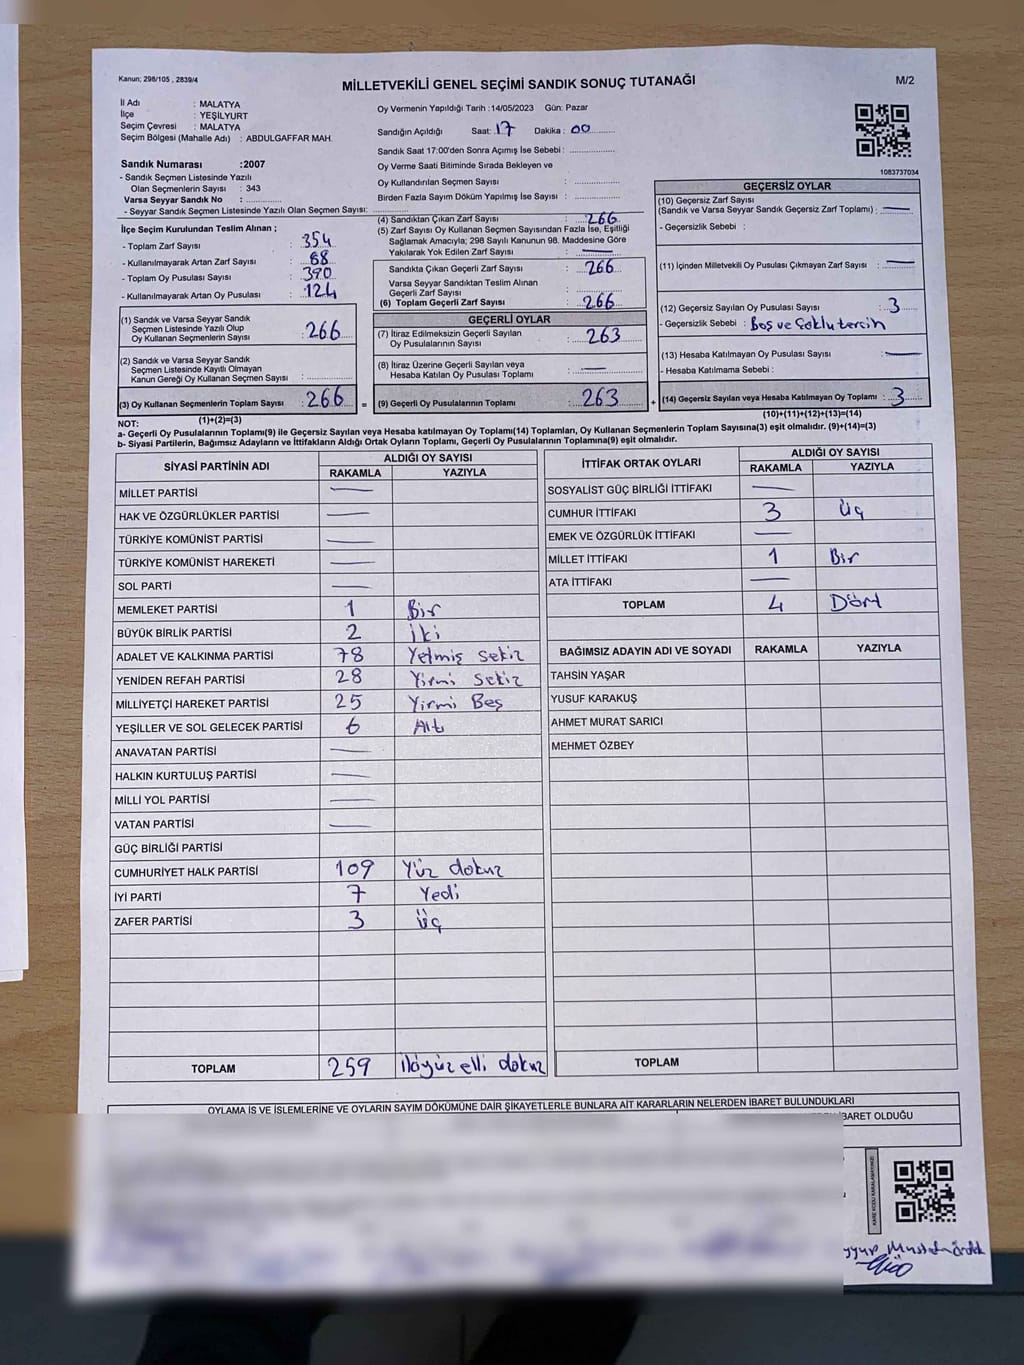 Kanun; 298/105 , 2839/4
MİLLETVEKİLİ GENEL SEÇİMİ SANDIK SONUÇ TUTANAĞI
M/2
İl Adı : MALATYA
İlçe : YEŞİLYURT
Seçim Çevresi : MALATYA
Seçim Bölgesi (Mahalle Adı) : ABDULGAFFAR MAH.
Sandık Numarası :2007
- Sandık Seçmen Listesinde Yazılı
Olan Seçmenlerin Sayısı : 343
Varsa Seyyar Sandık No :
- Seyyar Sandık Seçmen Listesinde Yazılı Olan Seçmen Sayısı:
Oy Vermenin Yapıldığı Tarih :14/05/2023 Gün: Pazar
Sandığın Açıldığı Saat: 17 Dakika : 00
Sandık Saat 17:00'den Sonra Açımış İse Sebebi :
Oy Verme Saati Bitiminde Sırada Bekleyen ve
Oy Kullandırılan Seçmen Sayısı :
Birden Fazla Sayım Döküm Yapılmış İse Sayısı :
1083737034
İlçe Seçim Kurulundan Teslim Alınan ;
- Toplam Zarf Sayısı : 354
- Kullanılmayarak Artan Zarf Sayısı : 88
- Toplam Oy Pusulası Sayısı : 390
- Kullanılmayarak Artan Oy Pusulası : 124
(1) Sandık ve Varsa Seyyar Sandık
Seçmen Listesinde Yazılı Olup
Oy Kullanan Seçmenlerin Sayısı : 266
(2) Sandık ve Varsa Seyyar Sandık
Seçmen Listesinde Kayıtlı Olmayan
Kanun Gereği Oy Kullanan Seçmen Sayısı :
(3) Oy Kullanan Seçmenlerin Toplam Sayısı : 266
(1)+(2)=(3)
(4) Sandıktan Çıkan Zarf Sayısı : 266
(5) Zarf Sayısı Oy Kullanan Seçmen Sayısından Fazla İse, Eşitliği
Sağlamak Amacıyla; 298 Sayılı Kanunun 98. Maddesine Göre
Yakılarak Yok Edilen Zarf Sayısı : —
Sandıkta Çıkan Geçerli Zarf Sayısı : 266
Varsa Seyyar Sandıktan Teslim Alınan
Geçerli Zarf Sayısı :
(6) Toplam Geçerli Zarf Sayısı : 266
GEÇERLİ OYLAR
(7) İtiraz Edilmeksizin Geçerli Sayılan
Oy Pusulalarının Sayısı : 263
(8) İtiraz Üzerine Geçerli Sayılan veya
Hesaba Katılan Oy Pusulası Toplamı : —
= (9) Geçerli Oy Pusulalarının Toplamı : 263
GEÇERSİZ OYLAR
(10) Geçersiz Zarf Sayısı
(Sandık ve Varsa Seyyar Sandık Geçersiz Zarf Toplamı) : —
- Geçersizlik Sebebi :
(11) İçinden Milletvekili Oy Pusulası Çıkmayan Zarf Sayısı : —
(12) Geçersiz Sayılan Oy Pusulası Sayısı : 3
- Geçersizlik Sebebi : Boş ve Çoklu tercih
(13) Hesaba Katılmayan Oy Pusulası Sayısı : —
- Hesaba Katılmama Sebebi :
+ (14) Geçersiz Sayılan veya Hesaba Katılmayan Oy Toplamı : 3
(10)+(11)+(12)+(13)=(14)
NOT:
a- Geçerli Oy Pusulalarının Toplamı(9) ile Geçersiz Sayılan veya Hesaba Katılmayan Oy Toplamı(14) Toplamları, Oy Kullanan Seçmenlerin Toplam Sayısına(3) eşit olmalıdır. (9)+(14)=(3)
b- Siyasi Partilerin, Bağımsız Adayların ve İttifakların Aldığı Ortak Oyların Toplamı, Geçerli Oy Pusulalarının Toplamına(9) eşit olmalıdır.
SİYASİ PARTİNİN ADI ALDIĞI OY SAYISI
RAKAMLA YAZIYLA
MİLLET PARTİSİ —
HAK VE ÖZGÜRLÜKLER PARTİSİ —
TÜRKİYE KOMÜNİST PARTİSİ —
TÜRKİYE KOMÜNİST HAREKETİ —
SOL PARTİ —
MEMLEKET PARTİSİ 1 Bir
BÜYÜK BİRLİK PARTİSİ 2 İki
ADALET VE KALKINMA PARTİSİ 78 Yetmiş sekiz
YENİDEN REFAH PARTİSİ 28 Yirmi sekiz
MİLLİYETÇİ HAREKET PARTİSİ 25 Yirmi Beş
YEŞİLLER VE SOL GELECEK PARTİSİ 6 Altı
ANAVATAN PARTİSİ —
HALKIN KURTULUŞ PARTİSİ —
MİLLİ YOL PARTİSİ —
VATAN PARTİSİ —
GÜÇ BİRLİĞİ PARTİSİ
CUMHURİYET HALK PARTİSİ 109 Yüz dokuz
İYİ PARTİ 7 Yedi
ZAFER PARTİSİ 3 Üç
TOPLAM 259 İkiyüz elli dokuz
İTTİFAK ORTAK OYLARI ALDIĞI OY SAYISI
RAKAMLA YAZIYLA
SOSYALİST GÜÇ BİRLİĞİ İTTİFAKI —
CUMHUR İTTİFAKI 3 Üç
EMEK VE ÖZGÜRLÜK İTTİFAKI —
MİLLET İTTİFAKI 1 Bir
ATA İTTİFAKI —
TOPLAM 4 Dört
BAĞIMSIZ ADAYIN ADI VE SOYADI RAKAMLA YAZIYLA
TAHSİN YAŞAR
YUSUF KARAKUŞ
AHMET MURAT SARICI
MEHMET ÖZBEY
TOPLAM
OYLAMA İŞ VE İŞLEMLERİNE VE OYLARIN SAYIM DÖKÜMÜNE DAİR ŞİKAYETLERLE BUNLARA AİT KARARLARIN NELERDEN İBARET BULUNDUKLARI
İBARET OLDUĞU
KARE KODU KARALAMAYINIZ!